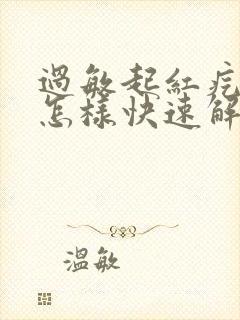 過敏起紅疙
怎樣快速解
溫敏